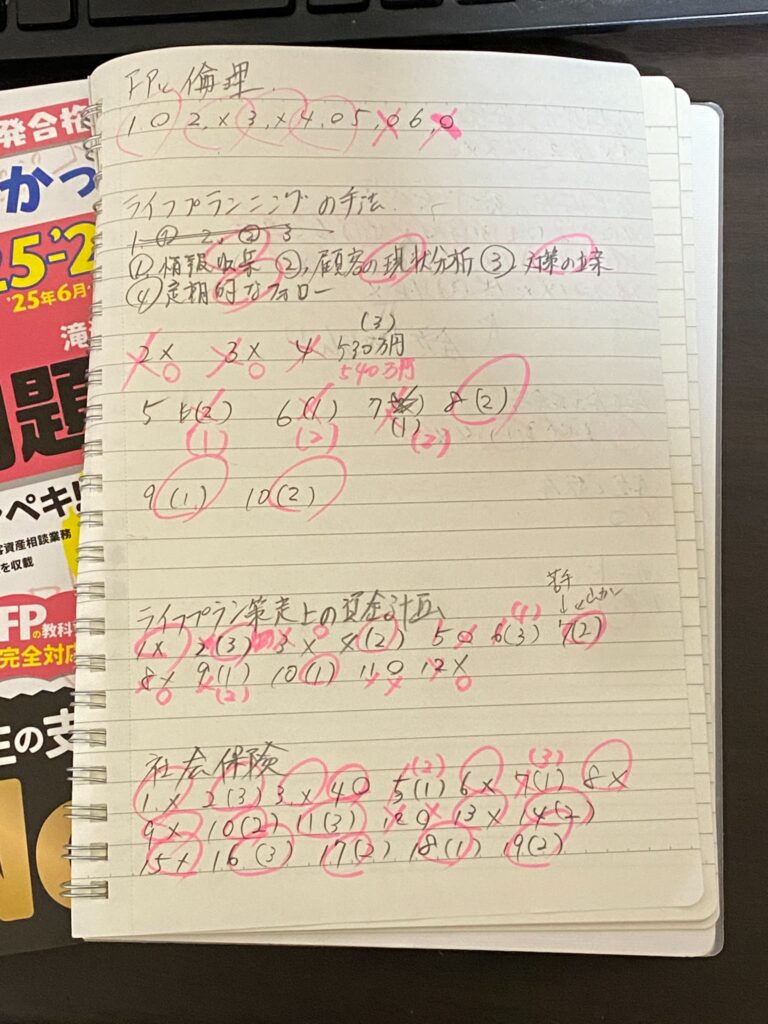 発合格
かっ
25-'2
'25年6月
滝
問題
ペキ!!
客資産相談業務
を収載
FPの教科
完全対応
生の支
No
FPと倫理
1, ○ 2, × 3, × 4, ○ 5, ○ 6, ○
ライフプランニングの手法
1 ① 2, ② 3
① 情報収集 ②, 顧客の現状分析 ③ 対策の立案
④ 定期的なフォロー
(3)
2 × 3 × 4 530万円
○ ○ 540万円
5 (2) 6 (1) 7 8 (2)
(1)
(1) (2) (2)
9 (1) 10 (2)
苦手
ライフプラン策定上の資金計画
○ (1)
1 × 2 (3) 3 × 4 (2) 5 ○ 6 (3) 7 (2)
8 × 9 (1) 10 (1) 11 ○ 12 ×
○ (2) × ○
社会保険
(2) (3)
1, × 2 (3) 3, × 4 ○ 5 (1) 6 × 7 (1) 8 ×
×
9 × 10 (2) 11 (3) 12 ○ 13 × 14 (2)
15 × 16 (3) 17 (2) 18 (1) 19 (2)